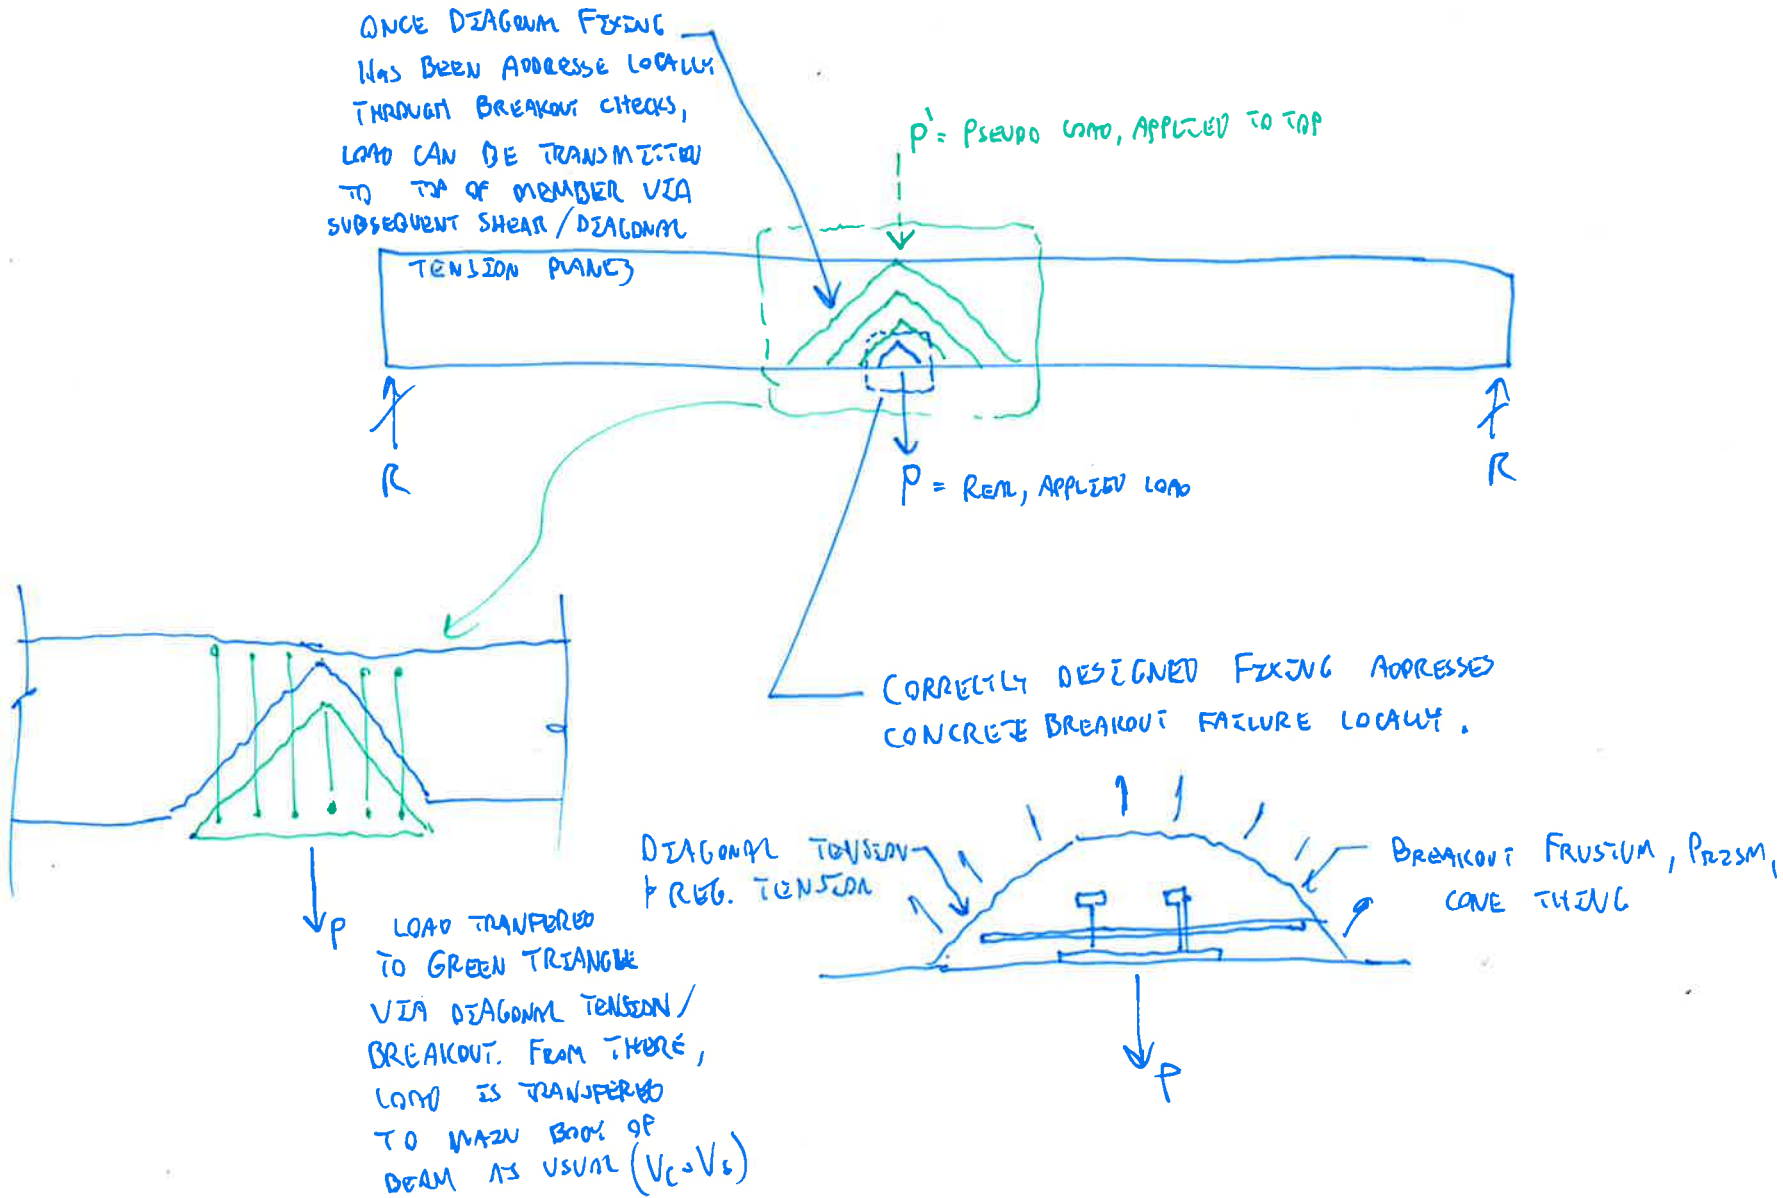 ONCE DIAGONAL FIXING
HAS BEEN ADDRESSE LOCALLY
THROUGH BREAKOUT CHECKS,
LOAD CAN BE TRANSMITTED
TO TOP OF MEMBER VIA
SUBSEQUENT SHEAR/DIAGONAL
TENSION PLANES
P' = PSEUDO LOAD, APPLIED TO TOP
R
P = REAL, APPLIED LOAD
R
CORRECTLY DESIGNED FIXING ADDRESSES
CONCRETE BREAKOUT FAILURE LOCALLY.
P
LOAD TRANFERED
TO GREEN TRIANGLE
VIA DIAGONAL TENSION/
BREAKOUT. FROM THERE,
LOAD IS TRANSFERED
TO MAIN BODY OF
BEAM AS USUAL (Vc, Vs)
DIAGONAL TENSION
& REG. TENSION
BREAKOUT FRUSTUM, PRISM,
CONE THING
P